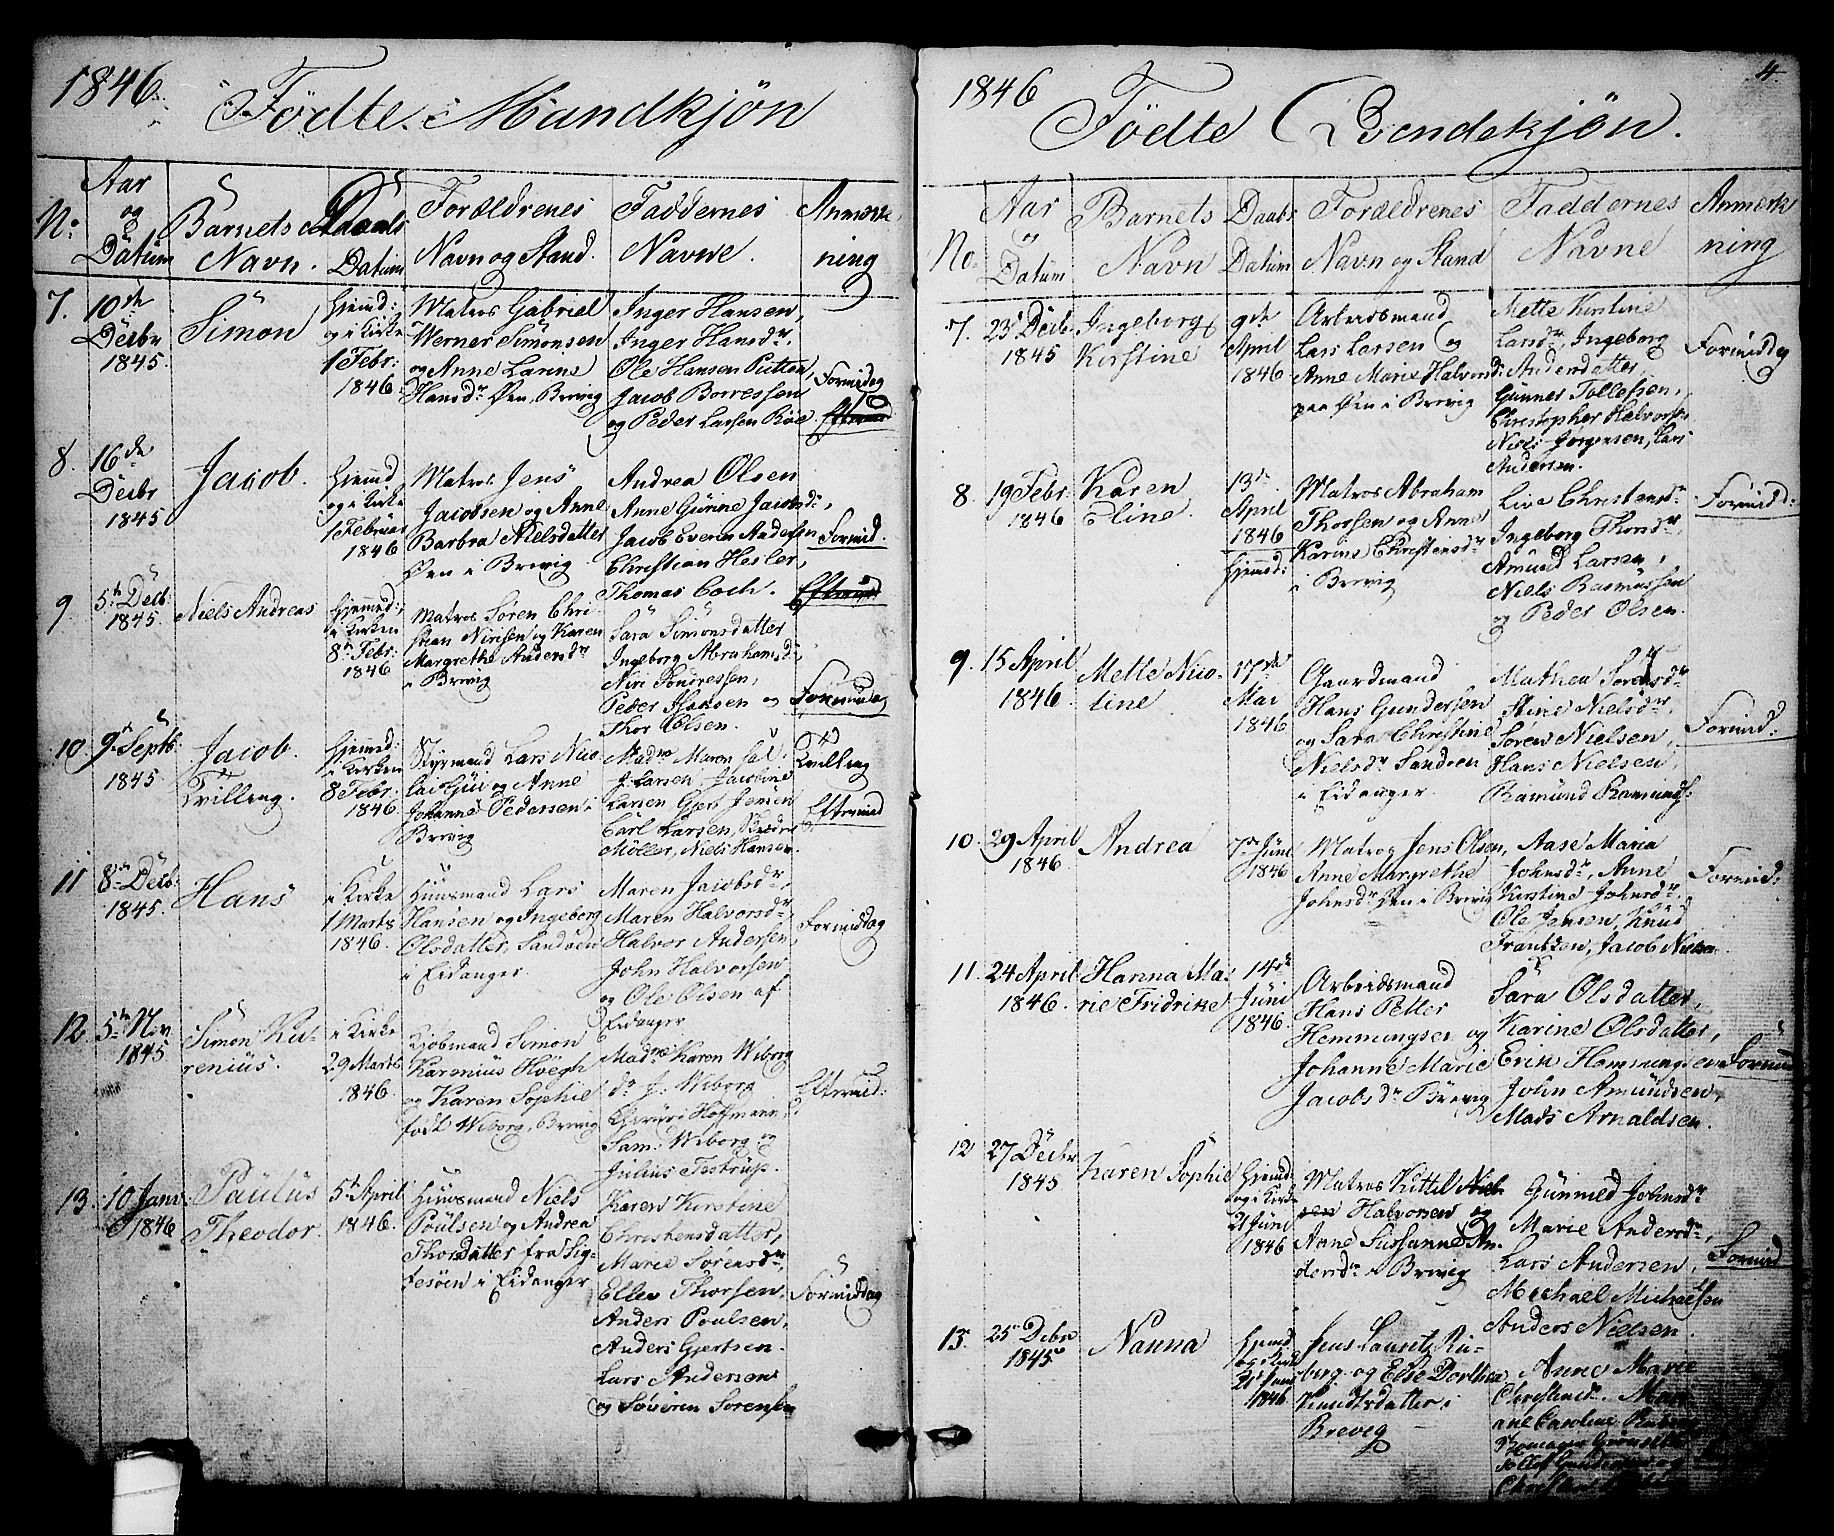 1846
Födte Mandkjön
No
Aar
og
Datum
Barnets
Navn.
Daabs
Datum
Forældrenes
Navn og Stand.
Faddernes
Navne.
Anmærk
ning
7.
10de
Decbr
1845.
Simon
Hjemmd:
og i Kirke
1 Febr:
1846.
Matros Gabriel
Werner Simonsen
og Anne Larine
Hansdr Øen, Brevig
Inger Hansen,
Inger Hansdr.
Ole Hansen Putten,
Jacob Borressen
og Peder Larsen Roe.
Formidag
8.
16de
Decbr
1845.
Jacob.
Hjemmd
og i Kirke
1 Februar
1846
Matros Jens
Jacobsen og Anne
Barbra Nielsdatter
Øen i Brevig
Andrea Olsen
Anne Gurine Jacobsdr,
Jacob Eversen Andersen
Christian Hesler,
Thomas Coch.
Formid.
9
5te Decb:
1845.
Niels Andreas
Hjemmd:
i Kirken
8de Febr:
1846
Matros Sören Chri-
stian Nirisen og Karen
Margrethe Andersdr
i Brevig
Sara Simonsdatter
Ingeborg Abrahamsd:
Niri Pondressen,
Peder Hansen og
Thor Olsen.
Formidd
10
9de Septb.
1845
Jacob.
Tvilling.
Hjemmd:
i Kirken
8 Febr:
1846.
Styrmand Lars Nico
lai Gui og Anne
Johanne Pedersen i
Brevig
Madme Maren Sal.
J. Larsen Jacobine
Larsen Gjert Jensen
Carl Larsen,
Möller, Niels Hansen.
Tvilling
Eftermid
11
8de Decb:
1845.
Hans
i Kirke
1 Marts
1846.
Huusmand Lars
Hansen og Ingeborg
Olsdatter, Sandöen
i Eidanger.
Maren Jacobsdr,
Maren Halvorsdr
Halvor Andersen,
John Halvorsen
og Ole Olsen af
Eidanger
Formiddag
12.
5te Nov
1845
Simon Ku-
renius.
i Kirke
29 Marts
1846.
Kjöbmand Simon
Karenius Höegh
og Karen Sophie
født Wiborg, Brevig
Madme Karen Wiborg
do J. Wiborg
Hoffmann
Sam: Wiborg og
Julius Testrup.
Eftermid:
13.
10 Janr
1846
Paulus
Theodor.
5te April
1846.
Huusmand Niels
Poulsen og Andrea
Thordatter fra Sig-
tesöen i Eidanger
Karen Kirstine
Christensdatter,
Marie Sörensdr,
Ellev Thorsen
Anders Poulsen,
Anders Gjertsen.
Lars Andersen
og Söveren Sorensen
Formiddag
1846
4
Födte Qvendekjön.
No.
Aar
og
Datum
Barnets
Navn
Daabs
Datum
Forældrenes
Navn og Stand
Faddernes
Navne
Anmærk
ning
7.
23d Decbr
1845
Ingeborg
Kirstine
9de
April
1846
Arbeidsmand
Lars Larsen og
Anne Marie Halvorsd:
paa Øen i Brevig
Mette Kirstine
Larsdr, Ingeborg
Andersdatter,
Gunner Tollefsen,
Christopher Halvorsn
Niels Jörgensen, Lars
Andersen.
Formiddg
8.
19 Febr:
1846
Karen
Eline.
13de
April
1846
Hjemmd:
Matros Abraham
Thorsen og Anne
Karine Christensdr
i Brevig
Live Christensdr
Ingeborg Thorsdr
Amund Larsen,
Niels Rasmussen
og Peder Olsen.
Formidd:
9.
15 April
1846.
Mette Nico-
line.
17de
Mai
1846
Gaardmand
Hans Gundersen
og Sara Christine
Nielsdr Sandöen
i Eidanger.
Mathea Sörensdr
Stine Nielsdr,
Sören Nielsen,
Hans Nielsen,
Ramund Ramunds:
Formidd:
10.
29 April
1846.
Andrea
7de Juni
1846
Matros Jens Olsen,
Anne Margrethe
Johnsdr Øen i Brevig
Aase Maria
Johnsdr, Anne
Kirstine Johnsdr.
Ole Jensen, Knud
Frantzen, Jacob Nielsen.
Formid:
11.
24 April
1846.
Hanna Ma-
rie Fridrike
14de
Juni
1846.
Arbeidsmand
Hans Petter
Hemmingsen og
Johanne Marie
Jacobsdr Brevig
Sara Olsdatter,
Karine Olsdatter,
Erik Hemmingsen
John Amundsen,
Mads Arnaldsen.
Formid
12
27 Decbr
1845
Karen Sophie
Hjemmd:
og i Kirke
21 Juni
1846
Matros Kittil
Halvorsen og
Anne Sussanne An-
dersdr i Brevig
Gunnild Johnsdr
Marie Andersdr,
Lars Andersen,
Michael Michaelsen
Anders Nielsen.
Formid
13.
25 Debr
1845
Nanna
Hjemmd
og i Kirke
21 Juni
1846
Jens Lauritz Ri-
berg. og Else Dorthea
Knudtsdatter i
Brevig
Anne Marie
Christensdr.
ane Caroline